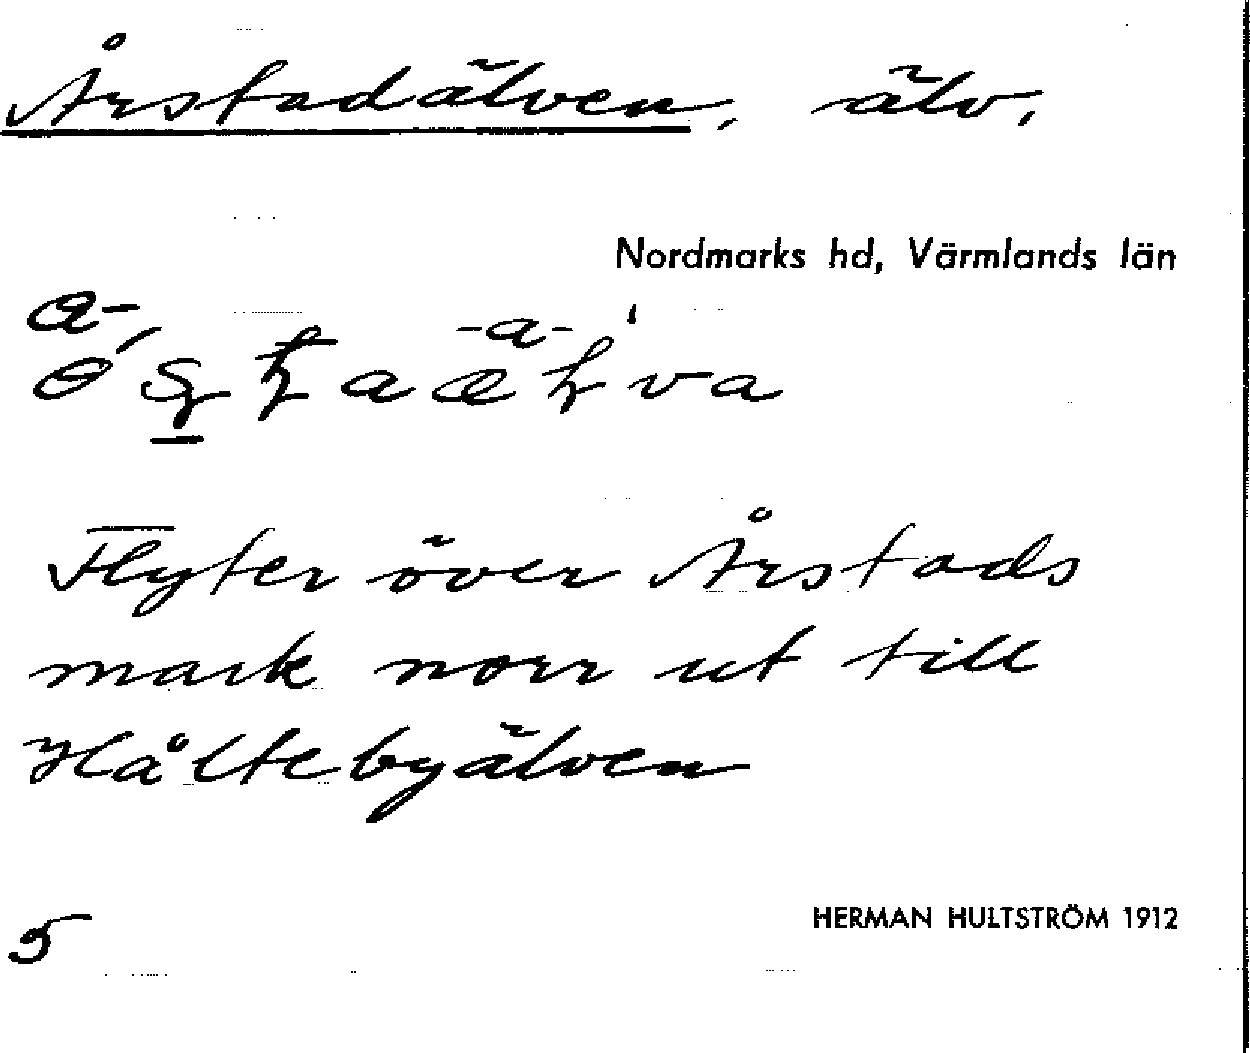 Årstadälven, älv,
Nordmarks hd, Värmlands län
a- -a-
Flyter över Årstads
mark norr ut till
Håltebyälven
5
HERMAN HULTSTRÖM 1912